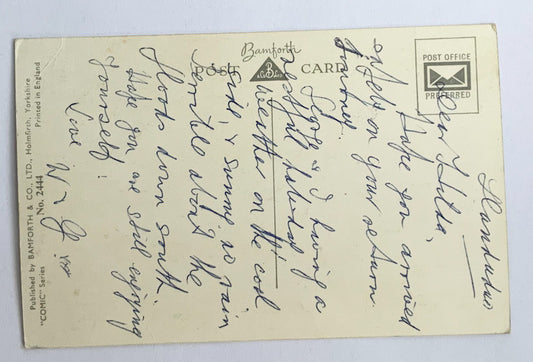 Bamforth
POST CARD
POST OFFICE
PREFERRED
Published by BAMFORTH & CO., LTD., Holmfirth, Yorkshire
"COMIC" Series No. 2444 Printed in England
Llandudno
Dear Hilda,
Hope you arrived
safely on your return
journey.
George & I having a
restful holiday
weather on the cool
side & sunny, no rain
terrible about the
floods down south
Hope you are still enjoying
yourself!
Love